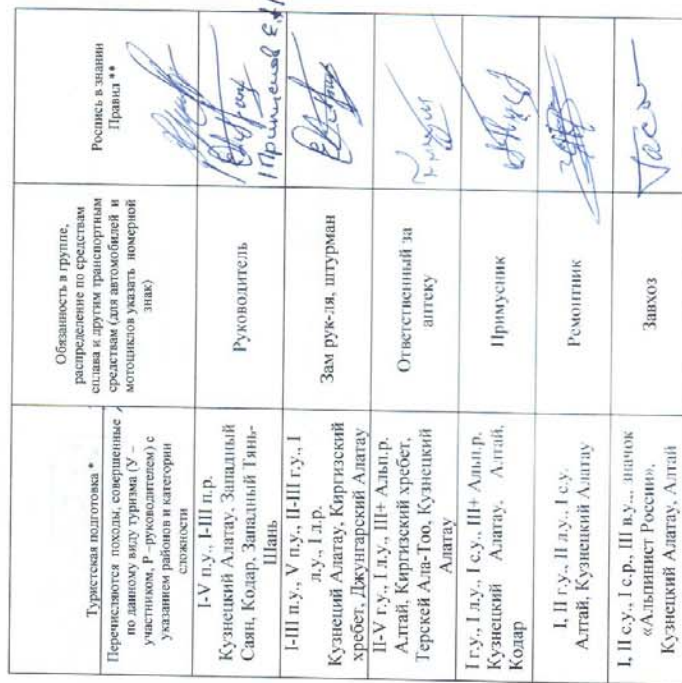 Туристская подготовка *
Перечисляются походы, совершенные
по данному виду туризма (У –
участником, Р –руководителем) с
указанием районов и категории
сложности
Обязанность в группе,
распределение по средствам
сплава и другим транспортным
средствам (для автомобилей и
мотоциклов указать номерной
знак)
Роспись в знании
Правил **
I-V п.у., I-III п.р.
Кузнецкий Алатау, Западный
Саян, Кодар, Западный Тянь-
Шань
Руководитель
I-III п.у., V п.у., II-III г.у., I
л.у., I л.р.
Кузнеций Алатау, Киргизский
хребет, Джунгарский Алатау
Зам рук-ля, штурман
II-V г.у., I л.у., III+ Альп.р.
Алтай, Киргизский хребет,
Терскей Ала-Тоо, Кузнецкий
Алатау
Ответственный за
аптеку
I г.у., I л.у., I с.у., III+ Альп.р.
Кузнецкий Алатау, Алтай,
Кодар
Примусник
I, II г.у., II л.у., I с.у.
Алтай, Кузнецкий Алатау
Ремонтник
I, II с.у., I с.р., III в.у., значок
«Альпинист России»,
Кузнецкий Алатау, Алтай
Завхоз